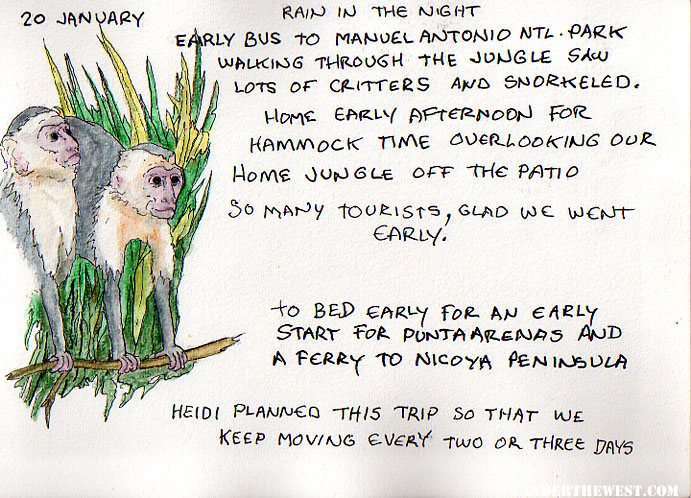 20 JANUARY
RAIN IN THE NIGHT
EARLY BUS TO MANUEL ANTONIO NTL. PARK
WALKING THROUGH THE JUNGLE SAW
LOTS OF CRITTERS AND SNORKELED.
HOME EARLY AFTERNOON FOR
HAMMOCK TIME OVERLOOKING OUR
HOME JUNGLE OFF THE PATIO
SO MANY TOURISTS, GLAD WE WENT
EARLY.
TO BED EARLY FOR AN EARLY
START FOR PUNTAARENAS AND
A FERRY TO NICOYA PENINSULA
HEIDI PLANNED THIS TRIP SO THAT WE
KEEP MOVING EVERY TWO OR THREE DAYS